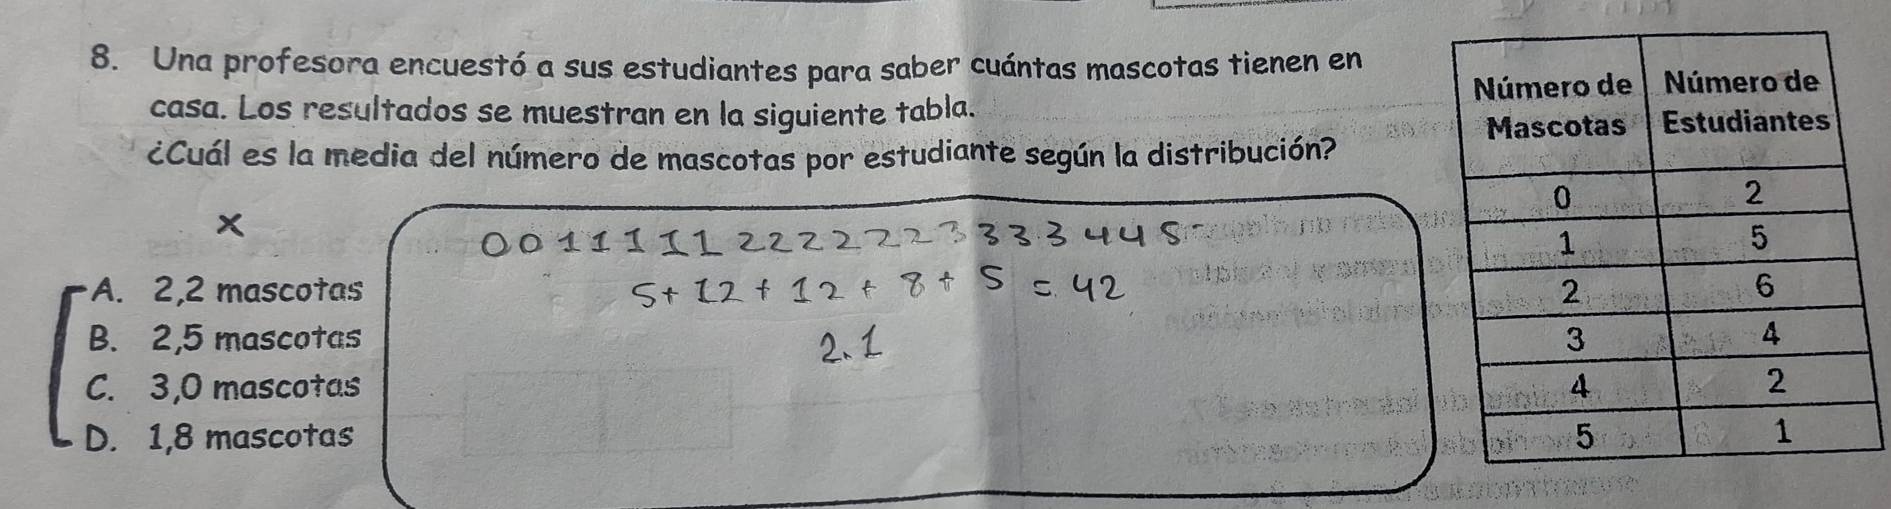 8. Una profesora encuestó a sus estudiantes para saber cuántas mascotas tienen en
casa. Los resultados se muestran en la siguiente tabla.
¿Cuál es la media del número de mascotas por estudiante según la distribución?
X
A. 2,2 mascotas
B. 2,5 mascotas
C. 3,0 mascotas
D. 1,8 mascotas
0 0 1 1 1 1 1 2 2 2 2 2 2 3 3 3 3 4 4 5
5 + 12 + 12 + 8 + 5 = 42
2.1
Número de Mascotas Número de Estudiantes
0 2
1 5
2 6
3 4
4 2
5 1